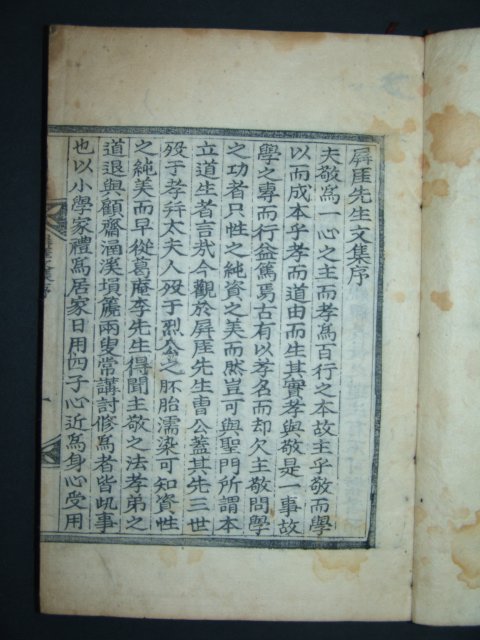 屏厓先生文集序
夫敬爲一心之主而孝爲百行之本故主乎敬而學
以而成本乎孝而道由而生其實孝與敬是一事故
學之專而行益篤焉古有以孝名而却欠主敬問學
之功者只性之純資之美而然豈可與聖門所謂本
立道生者言哉今觀於屏厓先生曺公蓋其先三世
歿于孝幷太夫人歿于烈公之胚胎濡染可知資性
之純美而早從葛庵李先生得聞主敬之法孝弟之
道退與顧齋涵溪塤篪兩叟常講討修爲者皆此事
也以小學家禮爲居家日用四子心近爲身心受用